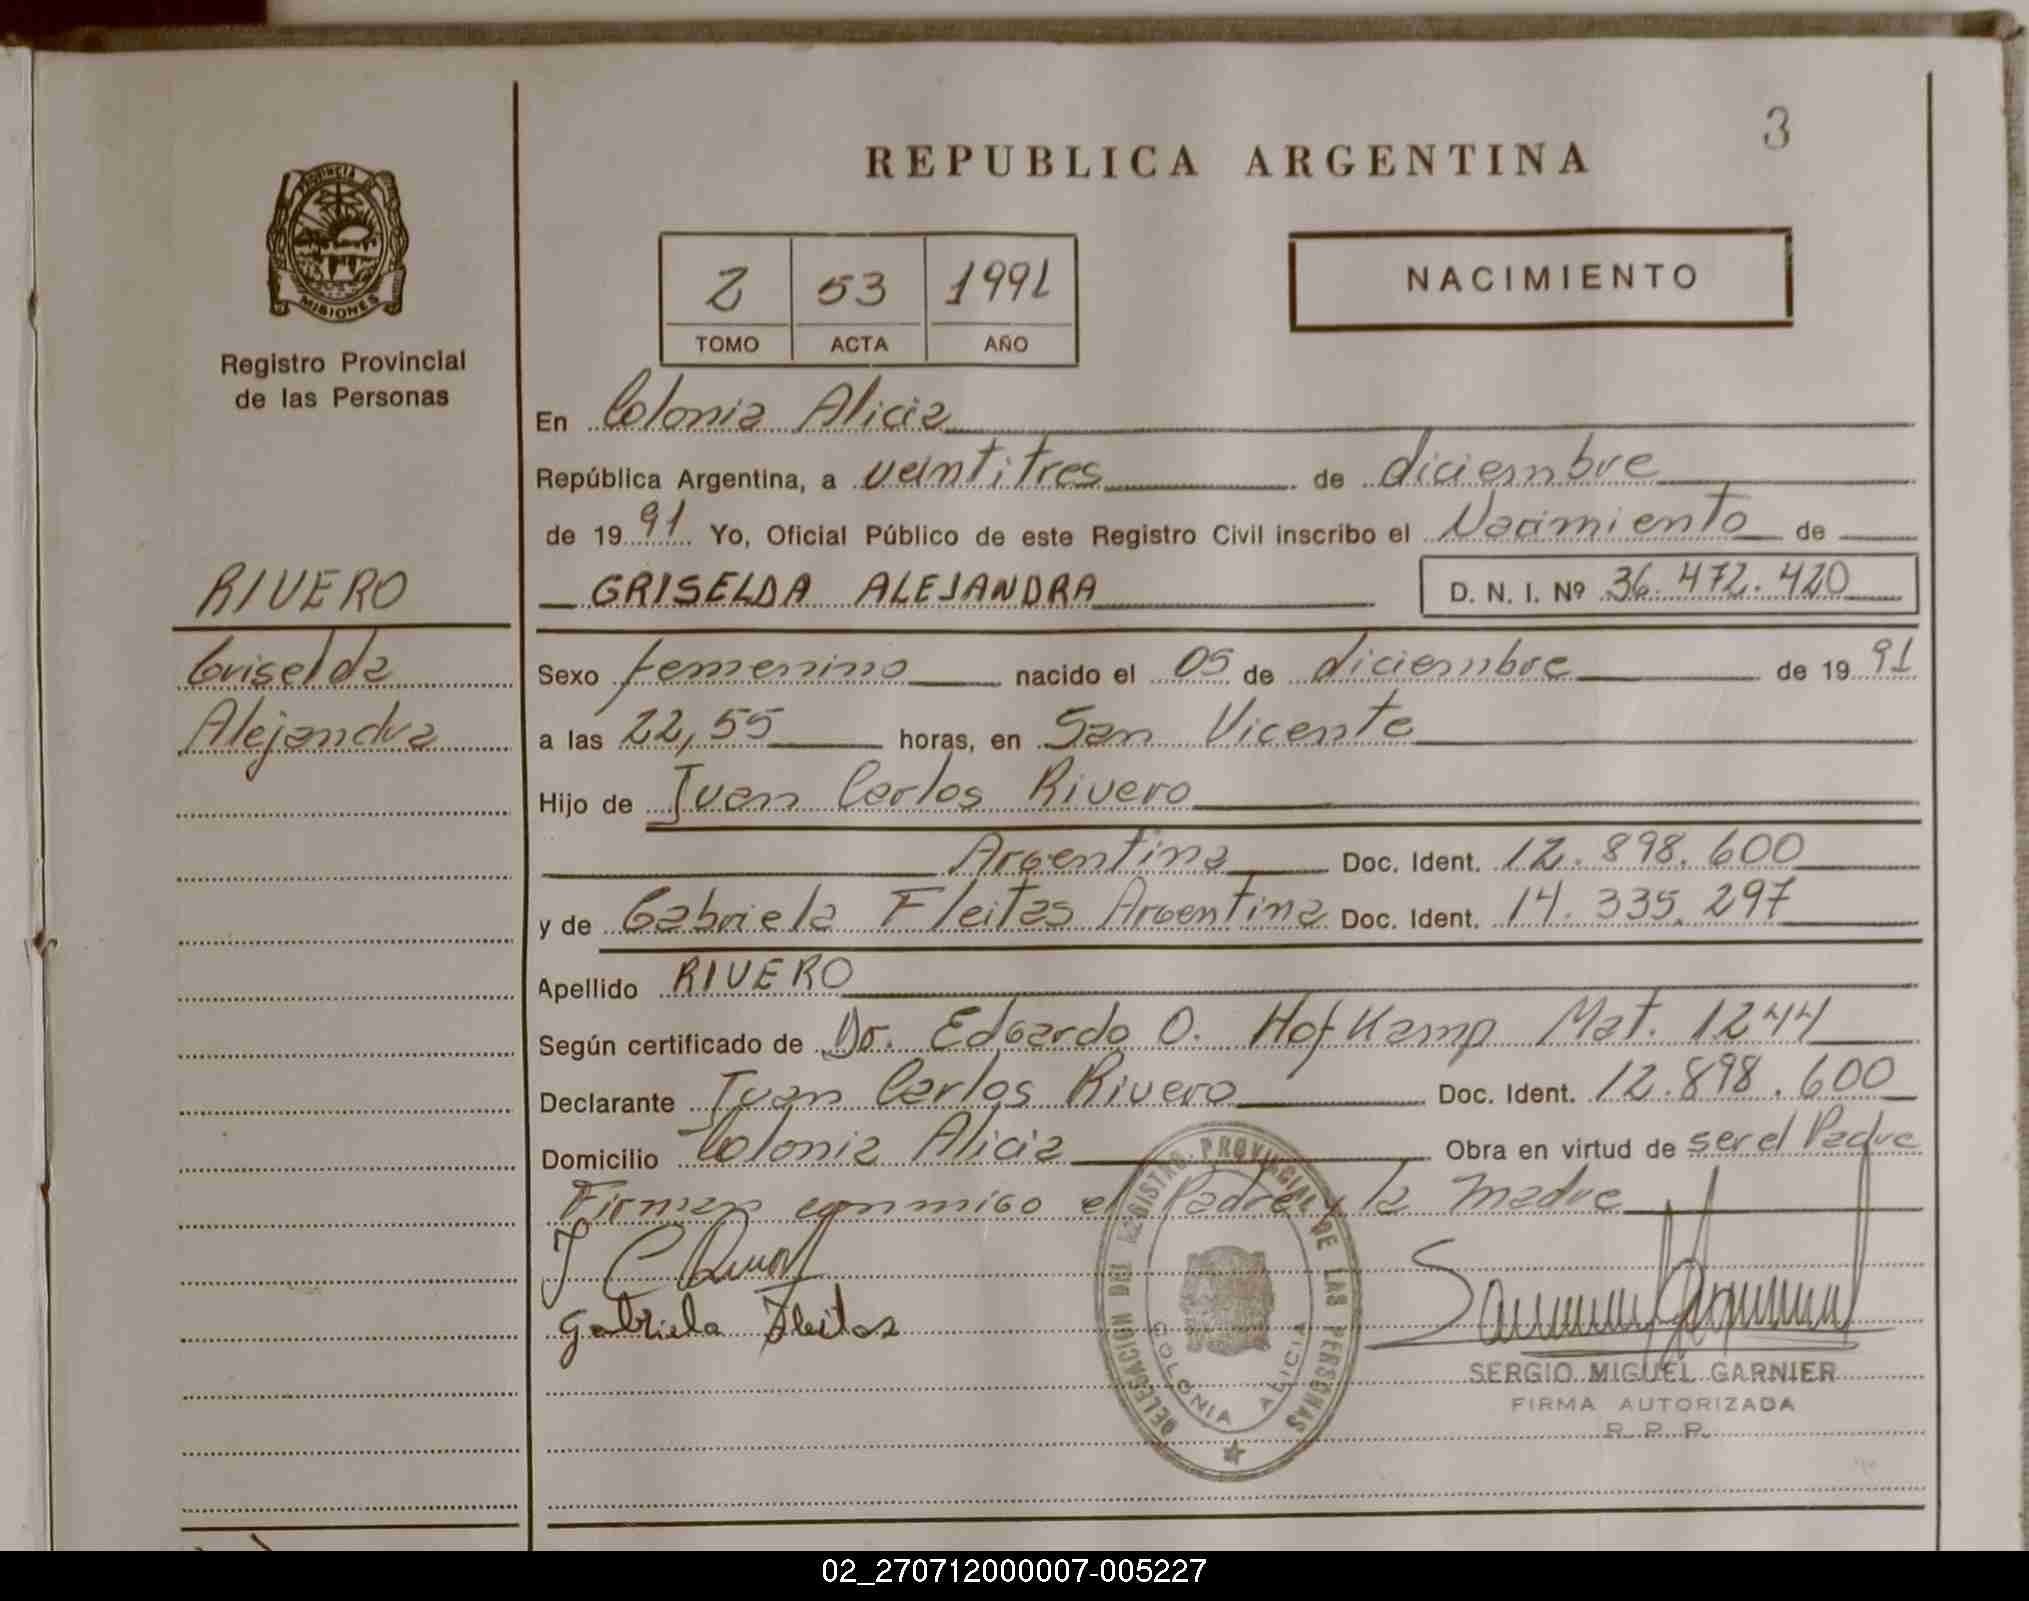 3
REPUBLICA ARGENTINA
PROVINCIA DE
MISIONES
Registro Provincial
de las Personas
2 53 1991
TOMO ACTA AÑO
NACIMIENTO
En Colonia Alicia
República Argentina, a veintitres de diciembre
de 1991 Yo, Oficial Público de este Registro Civil inscribo el Nacimiento de
RIVERO
GRISELDA ALEJANDRA D. N. I. Nº 36.472.420
Griselda
Alejandra
Sexo femenino nacido el 05 de diciembre de 1991
a las 22,55 horas, en San Vicente
Hijo de Juan Carlos Rivero
Argentina Doc. Ident. 12.898.600
y de Gabriela Fleitas Argentina Doc. Ident. 14.335.297
Apellido RIVERO
Según certificado de Dr. Edgardo O. Hofkamp Mat. 1244
Declarante Juan Carlos Rivero Doc. Ident. 12.898.600
Domicilio Colonia Alicia Obra en virtud de ser el Padre
Firman conmigo el Padre y la madre
J C
Gabriela Fleitas
DELEGACION DEL REGISTRO PROVINCIAL DE LAS PERSONAS
COLONIA ALICIA
SERGIO MIGUEL GARNIER
FIRMA AUTORIZADA
R. P. P.
02_270712000007-005227